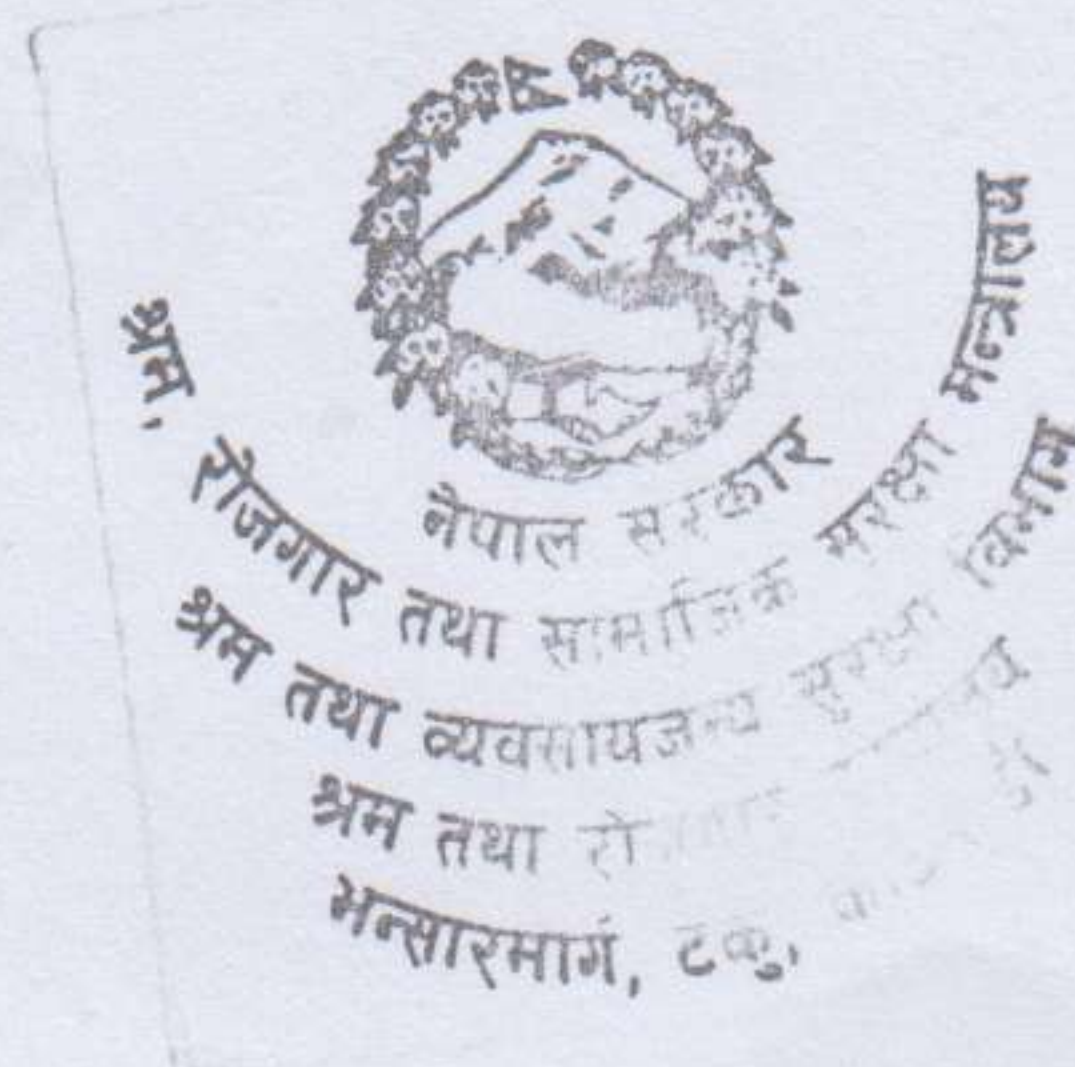 नेपाल सरकार
श्रम, रोजगार तथा सामाजिक सुरक्षा मन्त्रालय
श्रम तथा व्यवसायजन्य सुरक्षा विभाग
श्रम तथा
भन्सारमार्ग, टेकु,